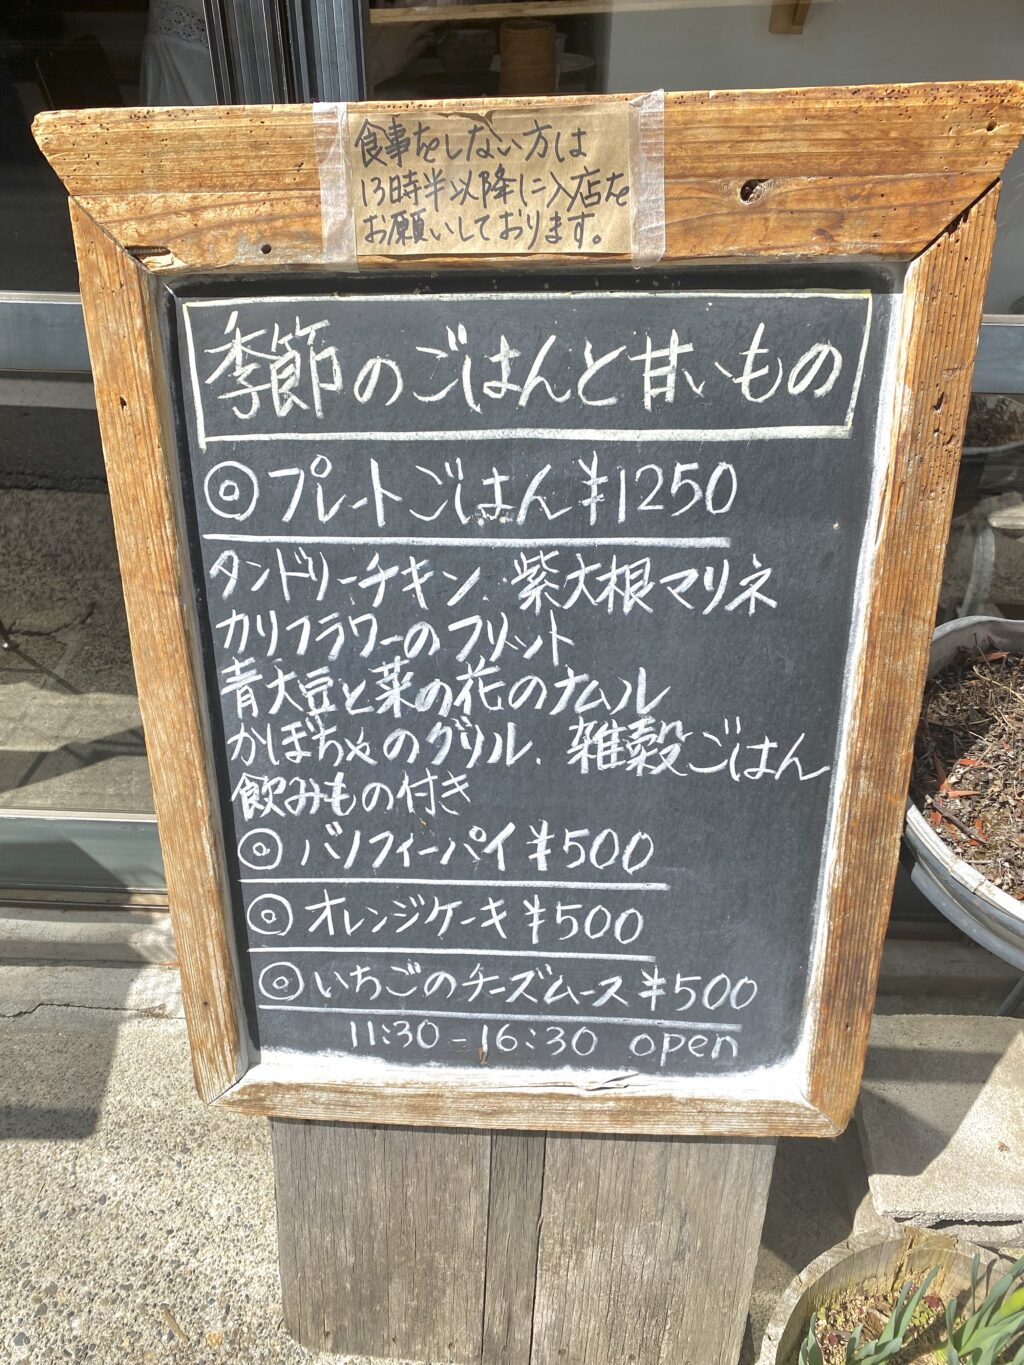 食事をしない方は
13時半以降に入店を
お願いしております。
季節のごはんと甘いもの
◎プレートごはん¥1250
タンドリーチキン、紫大根マリネ
カリフラワーのフリット
青大豆と菜の花のナムル
かぼちゃのグリル、雑穀ごはん
飲みもの付き
◎バノフィーパイ¥500
◎オレンジケーキ¥500
◎いちごのチーズムース¥500
11:30-16:30 open